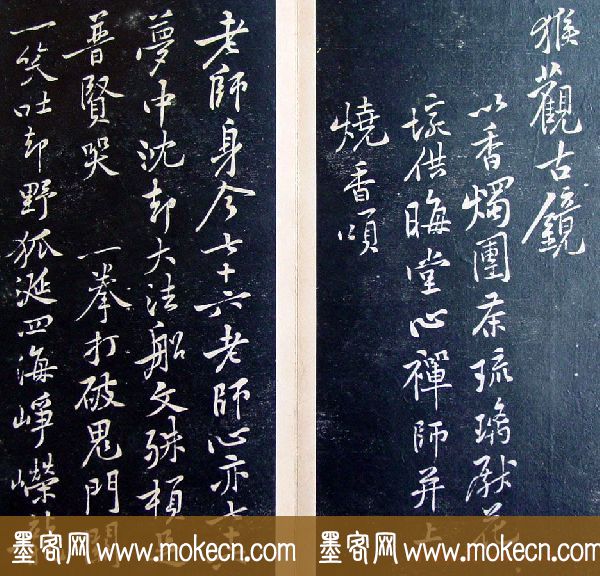 猴觀古鏡
以香燭團茶琉璃獻花
埦供晦堂心禪師并上
燒香頌
老師身今七十六老師心亦七十
夢中沈却大法船文殊頓足
普賢哭 一拳打破鬼門關
一笑吐却野狐涎四海崢嶸龍
墨客网www.mokecn.com 墨客网www.mokecn.com